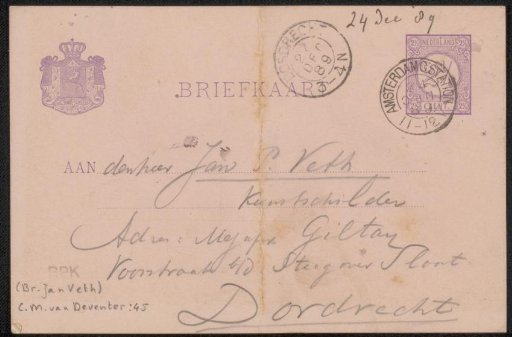 24 Dec 89
NEDERLAND
DORDRECHT
AMSTERDAM C. STATION
11-12
BRIEFKAART
AAN den heer Jan P. Veth
Kunstschilder
Adres: Mejufr Giltay
Voorstraat b/d Steegoversloot
Dordrecht
RPK
(Br. Jan Veth)
C.M. van Deventer: 45